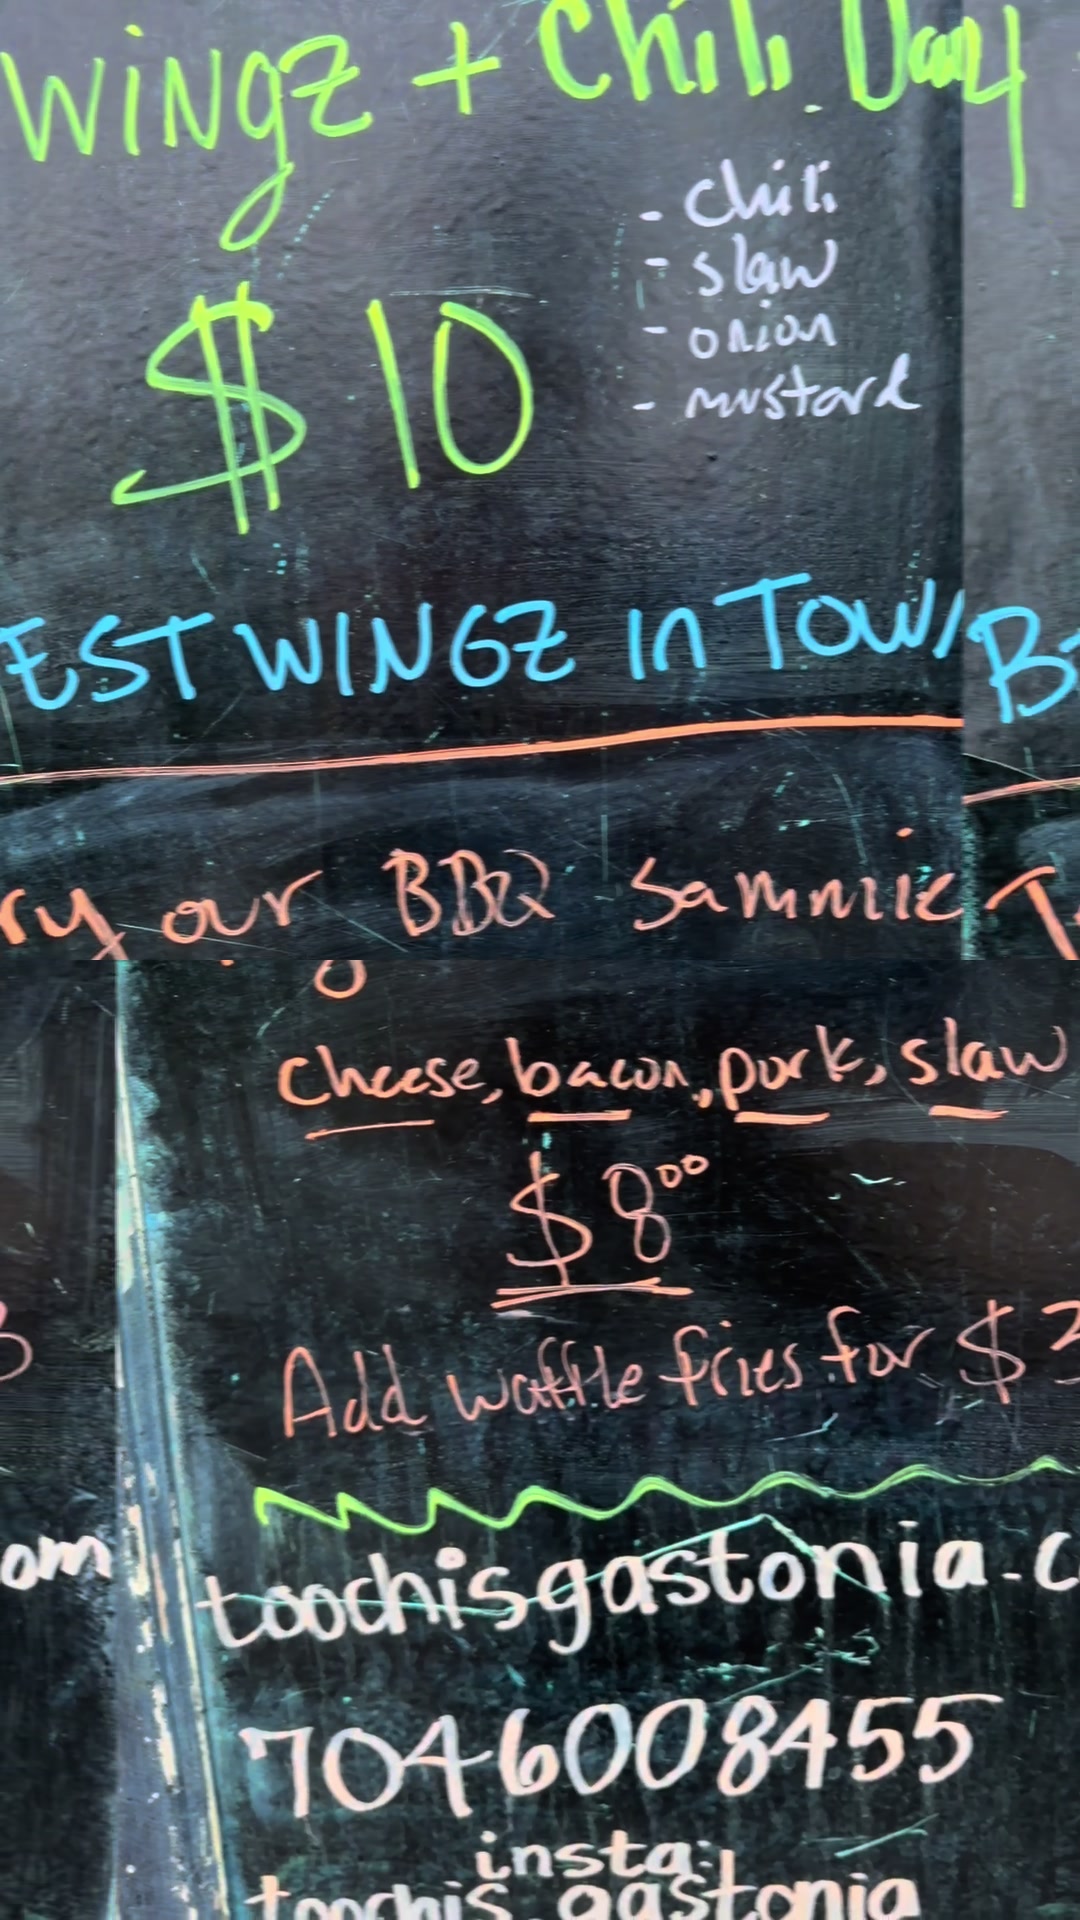 WINGZ + Chili Day
- chili
- slaw
- onion
- mustard
$10
EST WINGZ In TOWN
ry our BBQ Sammie
cheese, bacon, pork, slaw
$8⁰⁰
Add waffle fries for $3
toochisgastonia.c
om
7046008455
insta:
toochis.gastonia